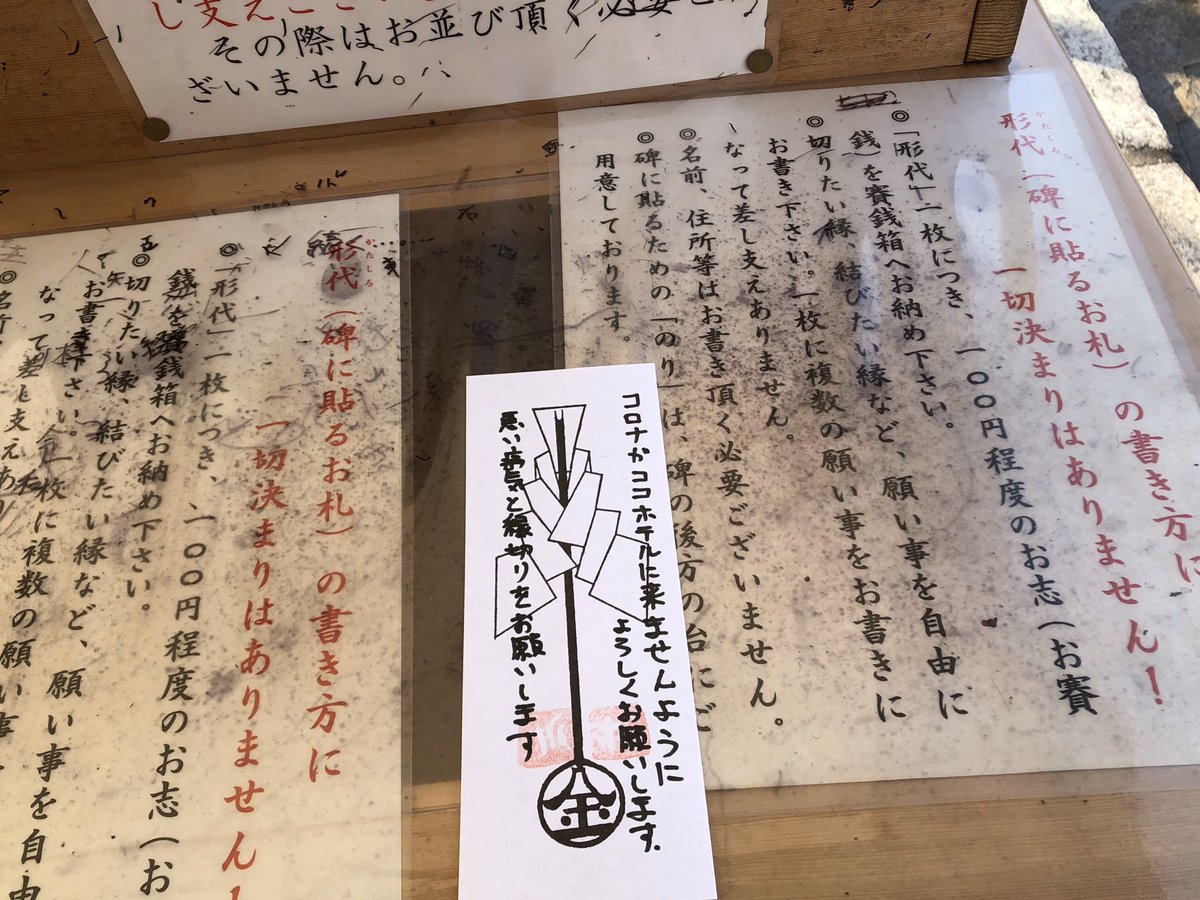 し支えござい
その際はお並び頂く必要ご
ざいません。
かたしろ
形代（碑に貼るお札）の書き方に
一切決まりはありません！
◎「形代」一枚につき、一〇〇円程度のお志（お賽
銭）を賽銭箱へお納め下さい。
◎切りたい縁、結びたい縁など、願い事を自由に
お書き下さい。一枚に複数の願い事をお書きに
なって差し支えありません。
◎名前、住所等はお書き頂く必要ございません。
◎碑に貼るための「のり」は、碑の後方の台にご
用意しております。
コロナがココホテルに来ませんように
よろしくお願いします.
悪い病気と縁切りをお願いします
金
かたしろ
形代（碑に貼るお札）の書き方に
一切決まりはありません！
◎「形代」一枚につき、一〇〇円程度のお志（お
銭）を賽銭箱へお納め下さい。
◎切りたい縁、結びたい縁など、願い事を自由
お書き下さい。一枚に複数の願い事
なって差し支えあり
◎名前